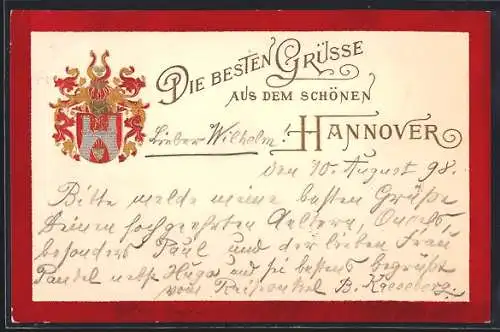 DIE BESTEN GRÜSSE
AUS DEM SCHÖNEN
HANNOVER
Lieber Wilhelm!
den 10. August 98.
Bitte melde meine besten Grüße
Deinen hochgeehrten Aeltern, Onkels,
besonders Paul und der lieben Frau
nebst Hugo und sei bestens begrüßt
vom B.